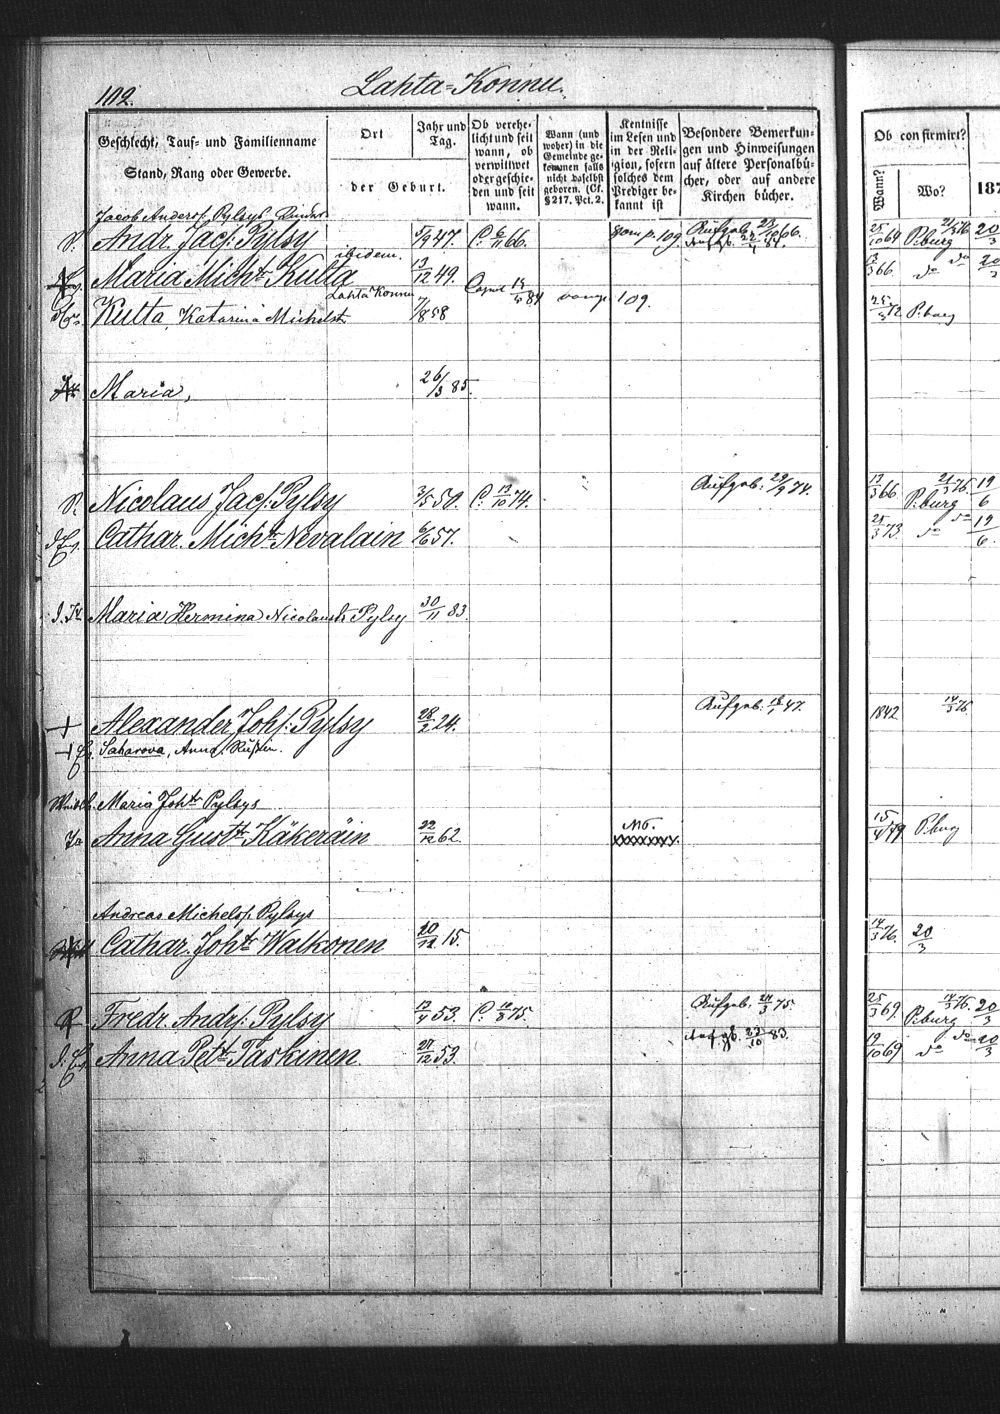 102.
Lahta-Konnu.
Geschlecht, Tauf- und Familienname
Stand, Rang oder Gewerbe.
Ort
der Geburt.
Jahr und Tag.
Ob verehelicht und seit wann, ob verwittwet oder geschieden und seit wann.
Wann (und woher) in die Gemeinde gekommen falls nicht daselbst geboren. (Cf. §217. Pct. 2.
Kentnisse im Lesen und in der Religion, sofern solches dem Prediger bekannt ist
Besondere Bemerkungen und Hinweisungen auf ältere Personalbücher, oder auf andere Kirchen bücher.
Ob confirmirt?
Wann?
Wo?
187
Jacob Anders. Pylsys Kinder
S. Andr. Jacs. Pylsy 5/9 47. C. 6/11 66. Aufgeb. 23/10 66. 25/10 64 P.burg 21/3 76 20/3
ibidem.
Maria Micht. Kutta 13/12 49. 13/3 66. do do 20/3
Lahta Konnu
Kutta, Katarina Michelst. 7/8 58 109. 25/3 72 P.burg
Maria, 26/3 85.
S. Nicolaus Jacs. Pylsy 3/5 50. C. 13/10 74. Aufgeb. 29/9 74. 13/3 66 P.burg 21/3 76 19/6
Cathar. Micht. Nevalain 6/6 57. 25/3 73 do do 19/6
Maria Hermina Nicolaust. Pylsy 30/11 83.
+ Alexander Johs. Pylsy 28/2 24. Aufgeb. 18/1 47. 1842 14/3 76
Saharova, Anna, Russin.
Maria Joht. Pylsys
Anna Gustt. Käkeräin 22/12 62. No. xxxxxxxx. 15/4 79 P.burg
Andreas Michels. Pylsys
Cathar. Joht. Walkonen 20/12 15. 14/3 76. 20/3
Fredr. Andrs. Pylsy 17/4 53. C. 10/8 75. Aufgeb. 21/3 75. 25/3 69 P.burg 14/3 76. 20/3
Aufgb. 23/10 83.
Anna Pett. Taskinen. 27/12 53. 19/10 69 do do 20/3